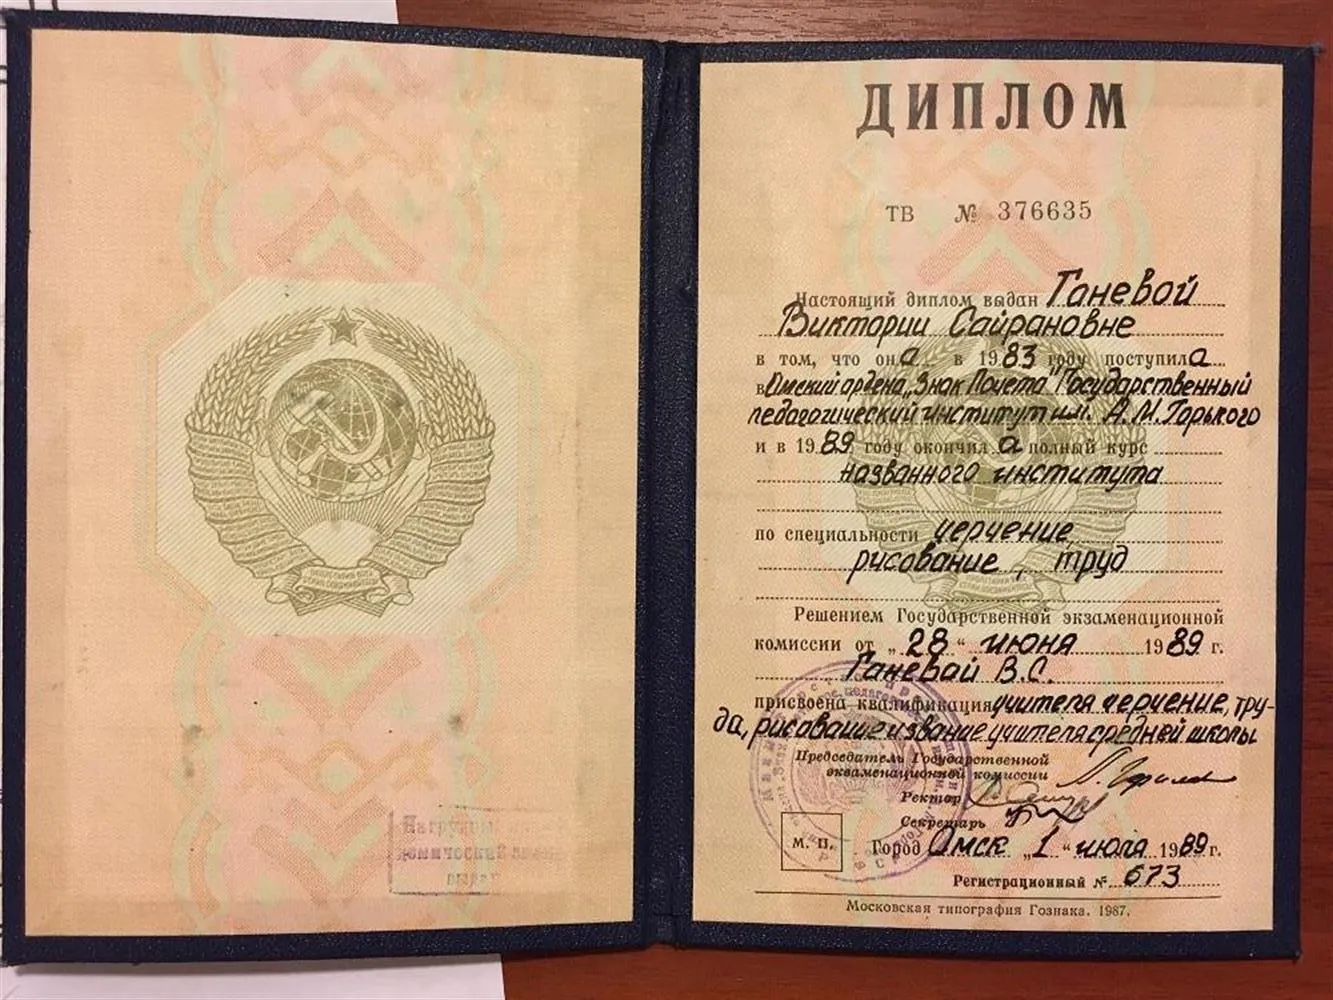 ДИПЛОМ
ТВ № 376635
Настоящий диплом выдан Ганевой
Виктории Сайрановне
в том, что она в 1983 году поступила
в Омский ордена „Знак Почета" Государственный
педагогический институт им. А.М. Горького
и в 1989 году окончила полный курс
названного института
по специальности черчение
рисование, труд
Решением Государственной экзаменационной
комиссии от „28" июня 1989 г.
Ганевай В.С.
присвоена квалификация учителя черчение, тру-
да, рисование и звание учителя средней школы
Председатель Государственной
экзаменационной комиссии
Ректор
Секретарь
М. П.
Город Омск „1" июля 1989 г.
Регистрационный № 673
Московская типография Гознака. 1987.